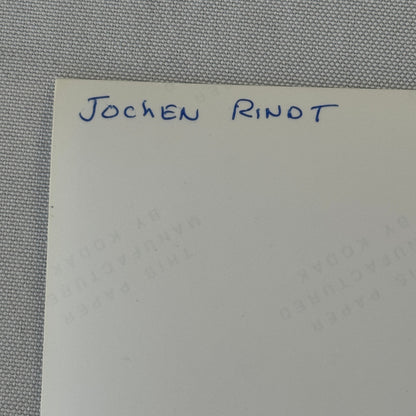 JOCHEN RINDT
THIS PAPER
MANUFACTURED
BY KODAK
THIS PAPER
MANUFACTURED
BY KODAK